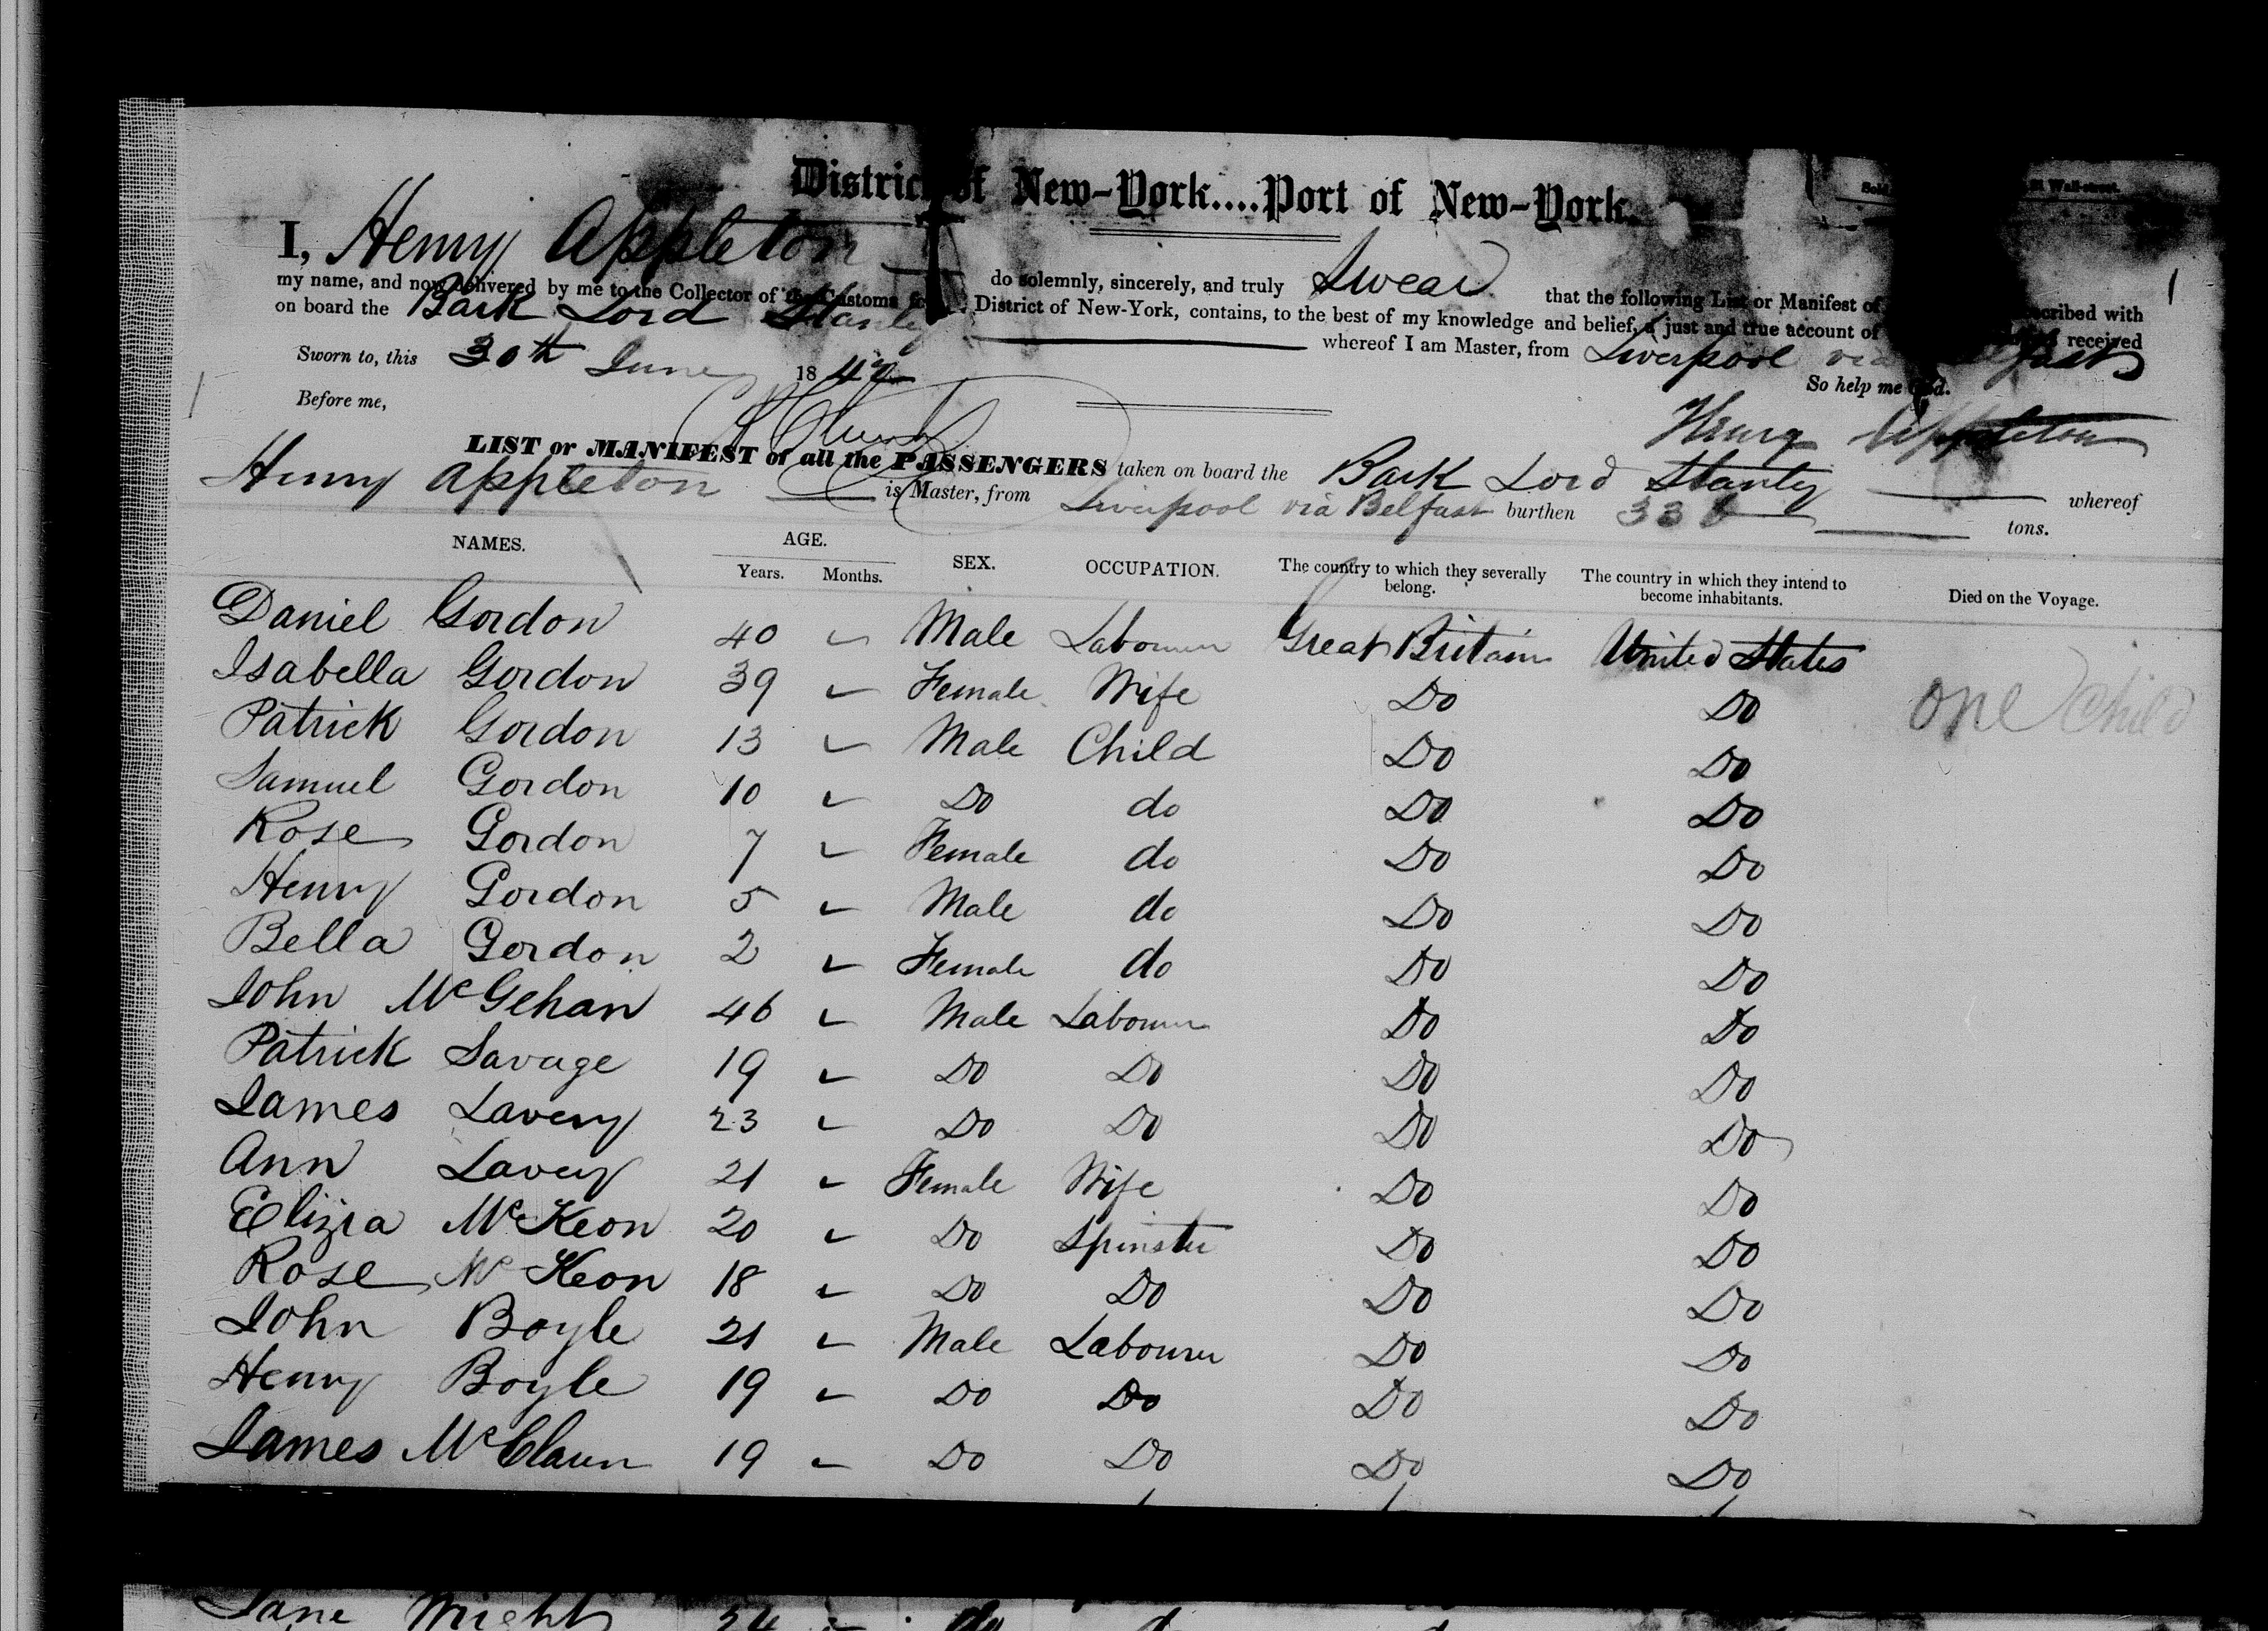 District of New-York....Port of New-York.
Sold 51 Wall-street.
I, Henry Appleton do solemnly, sincerely, and truly Swear that the following List or Manifest of scribed with
my name, and now delivered by me to the Collector of the Customs District of New-York, contains, to the best of my knowledge and belief, a just and true account of received
on board the Bark Lord Stanley whereof I am Master, from Liverpool via Belfast
Sworn to, this 30th June 1842
So help me God.
Before me,
Henry Appleton
LIST or MANIFEST of all the PASSENGERS taken on board the Bark Lord Stanley whereof
Henry Appleton is Master, from Liverpool via Belfast burthen tons.
NAMES. AGE. Years. Months. SEX. OCCUPATION. The country to which they severally belong. The country in which they intend to become inhabitants. Died on the Voyage.
Daniel Gordon 40 Male Labourer Great Britain United States
Isabella Gordon 39 Female Wife Do Do one Child
Patrick Gordon 13 Male Child Do Do
Samuel Gordon 10 Do do Do Do
Rose Gordon 7 Female do Do Do
Henry Gordon 5 Male do Do Do
Bella Gordon 2 Female do Do Do
John McGehan 46 Male Labourer Do Do
Patrick Savage 19 Do Do Do Do
James Lavery 23 Do Do Do Do
Ann Lavery 21 Female Wife Do Do
Elizra McKeon 20 Do Spinster Do Do
Rose McKeon 18 Do Do Do Do
John Boyle 21 Male Labourer Do Do
Henry Boyle 19 Do Do Do Do
James McClaun 19 Do Do Do Do
Jane Wright 24 do